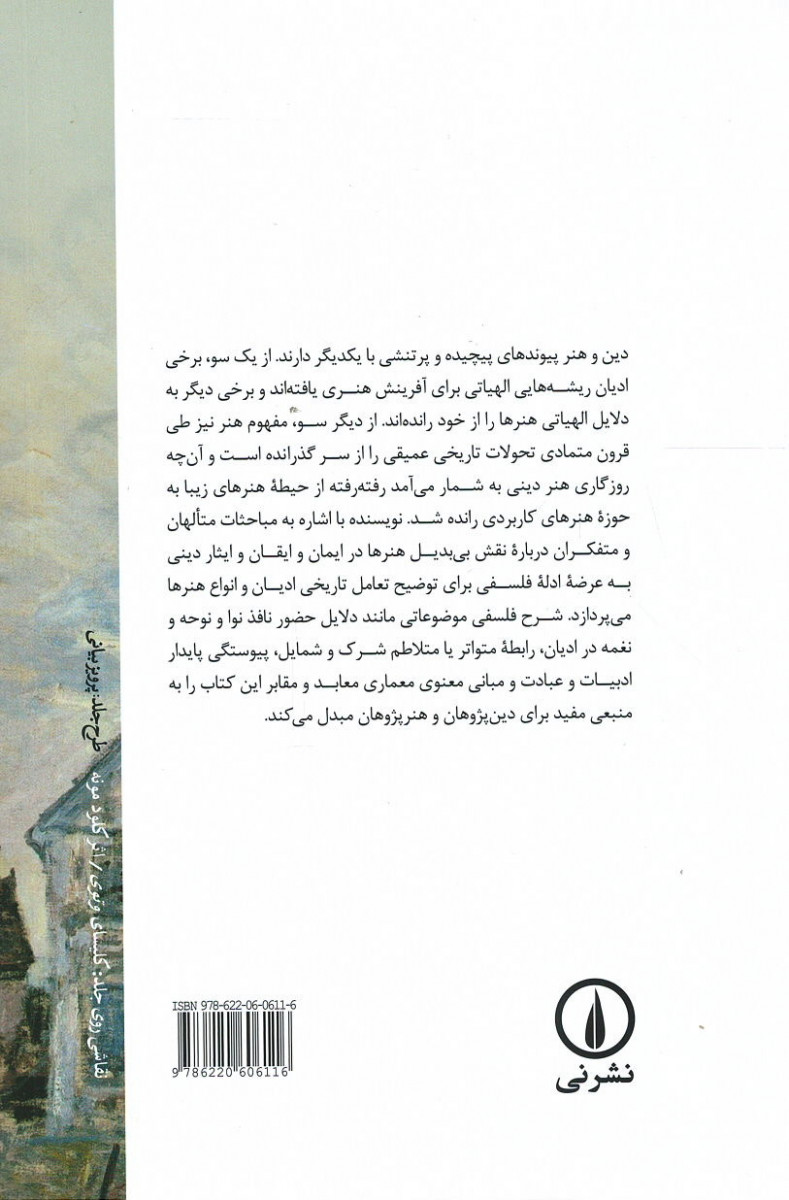 دین و هنر پیوندهای پیچیده و پرتنشی با یکدیگر دارند. از یک سو، برخی
ادیان ریشه‌هایی الهیاتی برای آفرینش هنری یافته‌اند و برخی دیگر به
دلایل الهیاتی هنرها را از خود رانده‌اند. از دیگر سو، مفهوم هنر نیز طی
قرون متمادی تحولات تاریخی عمیقی را از سر گذرانده است و آن‌چه
روزگاری هنر دینی به شمار می‌آمد رفته‌رفته از حیطهٔ هنرهای زیبا به
حوزهٔ هنرهای کاربردی رانده شد. نویسنده با اشاره به مباحثات متألهان
و متفکران دربارهٔ نقش بی‌بدیل هنرها در ایمان و ایقان و ایثار دینی
به عرضهٔ ادلهٔ فلسفی برای توضیح تعامل تاریخی ادیان و انواع هنرها
می‌پردازد. شرح فلسفی موضوعاتی مانند دلایل حضور نافذ نوا و نوحه و
نغمه در ادیان، رابطهٔ متواتر یا متلاطم شرک و شمایل، پیوستگی پایدار
ادبیات و عبادت و مبانی معنوی معماری معابد و مقابر این کتاب را به
منبعی مفید برای دین‌پژوهان و هنرپژوهان مبدل می‌کند.
طرح جلد: پرویز بیانی
نقاشی روی جلد: کلیسای وتوی / اثر کلود مونه
ISBN 978-622-06-0611-6
9 786220 606116
نشرنی